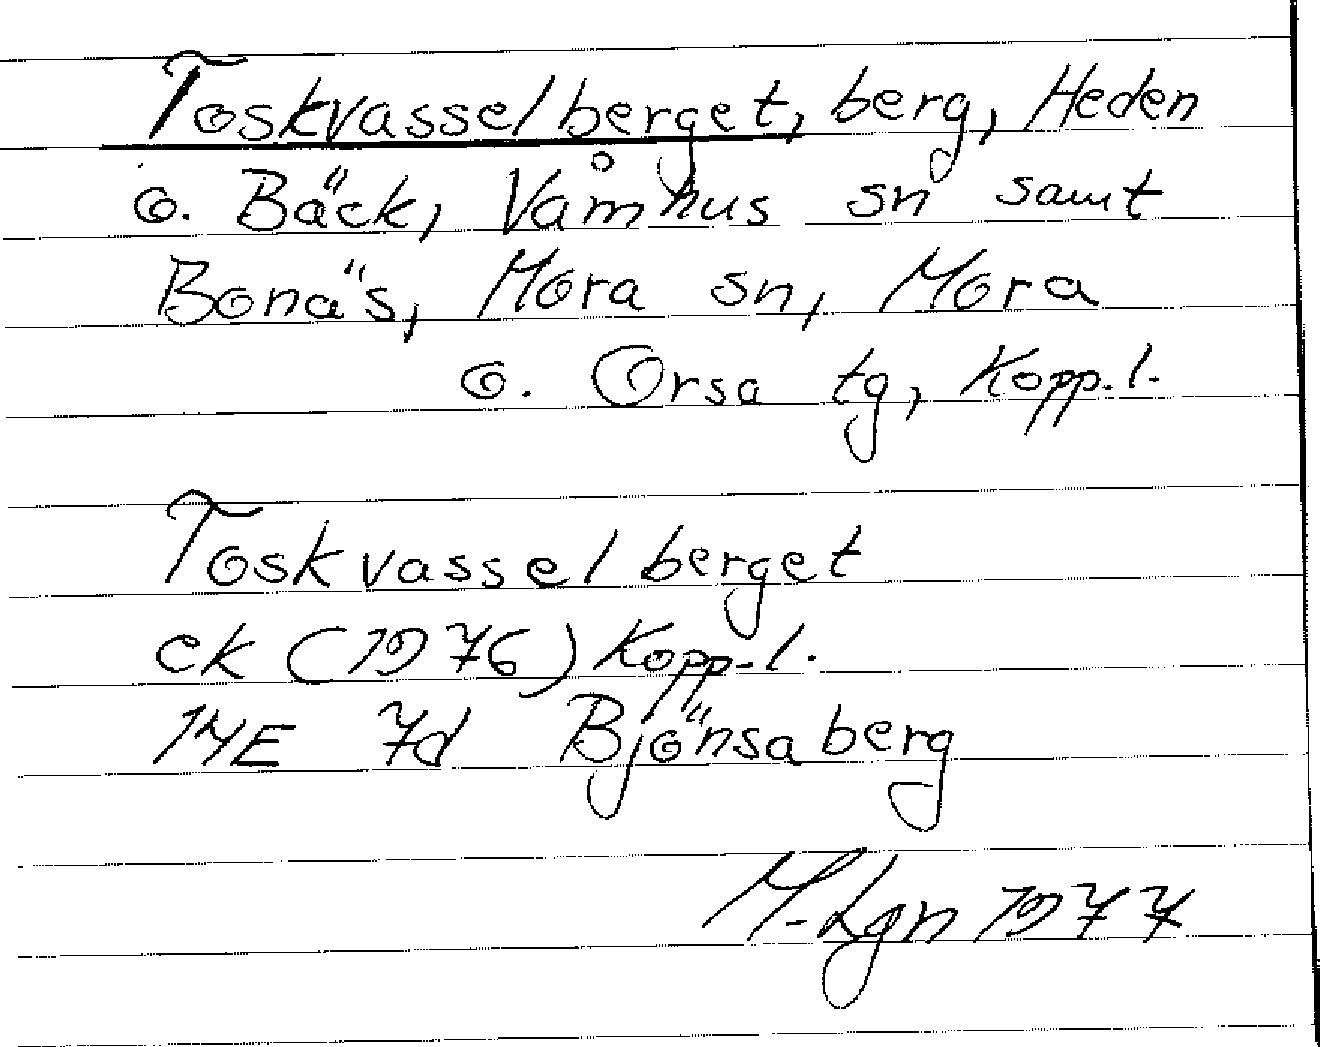 Toskvasselberget, berg, Heden
o. Bäck, Våmhus sn samt
Bonäs, Mora sn, Mora
o. Orsa tg, Kopp.l.
Toskvasselberget
ek (1976) Kopp.l.
14E 7d Bjönsaberg
M-Lgn 1977